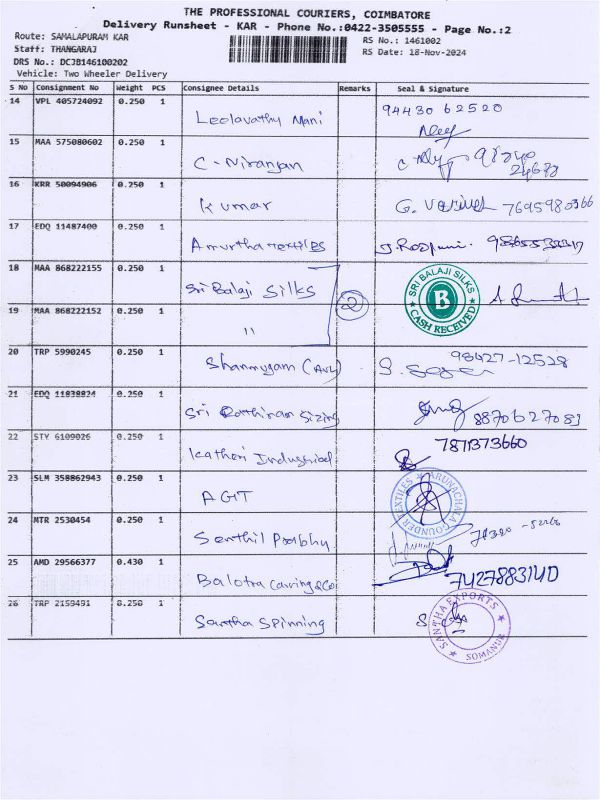 THE PROFESSIONAL COURIERS, COIMBATORE
Delivery Runsheet - KAR - Phone No.:0422-3505555 - Page No.:2
Route: SAMALAPURAM KAR
RS No.: 1461002
Staff: THANGARAJ
RS Date: 18-Nov-2024
DRS No.: DCJB146100202
Vehicle: Two Wheeler Delivery
S No Consignment No Weight PCS Consignee Details Remarks Seal & Signature
14 VPL 405724092 0.250 1 Leelavathy Mani 94430 62520
15 MAA 575080602 0.250 1 C-Niranjan
16 KRR 50094906 0.250 1 Kumar G. 7695980366
17 EDQ 11487400 0.250 1 Amurtha textiles
18 MAA 868222155 0.250 1 Sri Balaji Silks 2 SRI BALAJI SILKS B CASH RECEIVED
19 MAA 868222152 0.250 1 "
20 TRP 5990245 0.250 1 Shanmugam 98427-12528
21 EDQ 11838824 0.250 1 Sri Sizing 8870627083
22 STY 6109026 0.250 1 Katheri Industrial 7871373660
23 SLM 358862943 0.250 1 AGT ARUNACHALA GOUNDER TEXTILES
24 MTR 2530454 0.250 1 Senthil Prabhu
25 AMD 29566377 0.430 1 Balotra Carving & Co 7427883140
26 TRP 2159491 0.250 1 Santha Spinning SANTHA EXPORTS SOMANUR